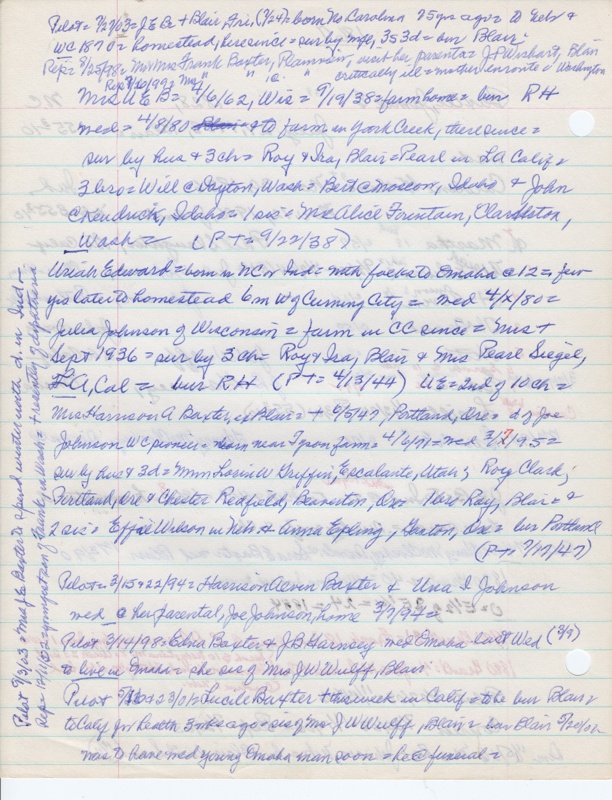 Pilot = 7/27/03 = J E Bx + Blair, Fri (7/24) = born No Carolina 75 yrs ago = to Neb &
WC 1870 = homestead, here since = sur by wife, 3s 3d = bur Blair =
Rep = 8/25/98 = Mr & Mrs Frank Baxter, Plainview, visit her parents = J P Wishart, Blair
critically ill = mother enroute = Washington
Mrs U E B = 4/6/62, Wis = 9/19/38 = farm home = bur RH
med = 4/8/80 & to farm in York Creek, there since =
sur by hus & 3 ch = Roy & Ira, Blair = Pearl in LA Calif =
3 bro = Will @ Dayton, Wash = Bert @ Moscow, Idaho & John
@ Kendrick, Idaho = 1 sis = Mrs Alice Fountain, Clarkston,
Wash = (P-T = 9/22/38)
Uriah Edward = born in NC or Ind = with folks to Omaha @ 12 = few
yrs later to homestead 6 m W of Cuming City = med 4/8/80 =
Julia Johnson of Wisconsin = farm in CC since = Mrs +
Sept 1936 = sur by 3 ch = Roy & Ira, Blair & Mrs Pearl Siegel,
LA, Cal = bur RH (P-T = 4/13/44) UE = 2nd of 10 ch =
Mrs Harrison A Baxter, ex Blair = + 6/5/47, Portland, Ore = d of Joe
Johnson WC pioneer = born near Tyson farm = 4/6/71 = med 3/7/95 =
sur by hus & 3d = Mmes Lorin W Griffin, Escalante, Utah; Roy Clark,
Portland, Ore & Chester Redfield, Beaverton, Ore = bro Ray, Blair = &
2 sis = Effie Wilson in Neb & Anna Epling, Gaston, Ore = bur Portland
(P-T = 7/17/47)
Pilot = 3/15 & 22/94 = Harrison Baxter & Una I Johnson
med @ her parental, Joe Johnson, home 3/7/94 =
Pilot 3/14/98 = Edna Baxter & J B Harnsey med Omaha last Wed (3/9)
to live in Omaha = she sis of Mrs J W Wulff, Blair
Pilot & 23/01 = Lucile Baxter + this week in Calif = to be bur Blair =
to Calif for health 3 wks ago = sis of Mrs J W Wulff, Blair = bur Blair
was to have med young Omaha man soon = he @ funeral =